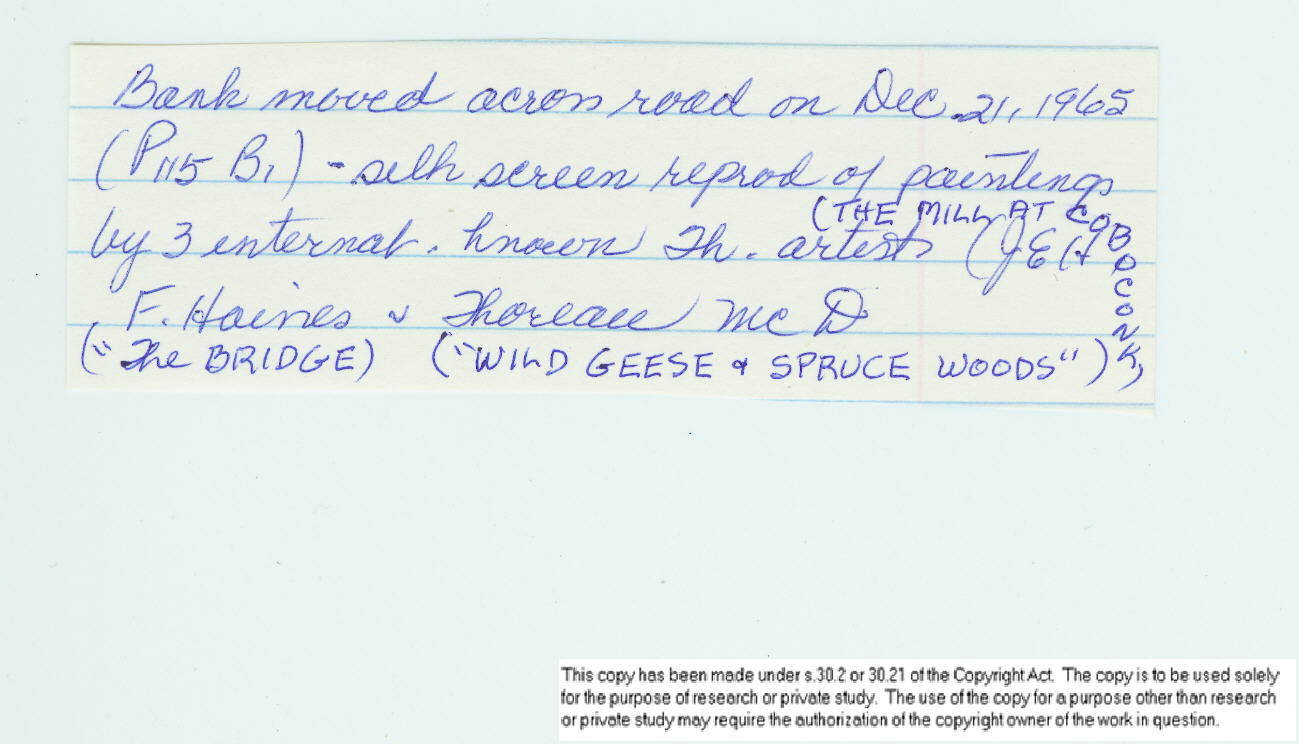 Bank moved across road on Dec. 21, 1965
(P115 B1) - silk screen reprod of paintings
(THE MILL AT COBOCONK,)
by 3 internat. known Th. artists (JEH
F. Haines & Thoreau McD
("The BRIDGE) ("WILD GEESE & SPRUCE WOODS")
This copy has been made under s.30.2 or 30.21 of the Copyright Act. The copy is to be used solely
for the purpose of research or private study. The use of the copy for a purpose other than research
or private study may require the authorization of the copyright owner of the work in question.